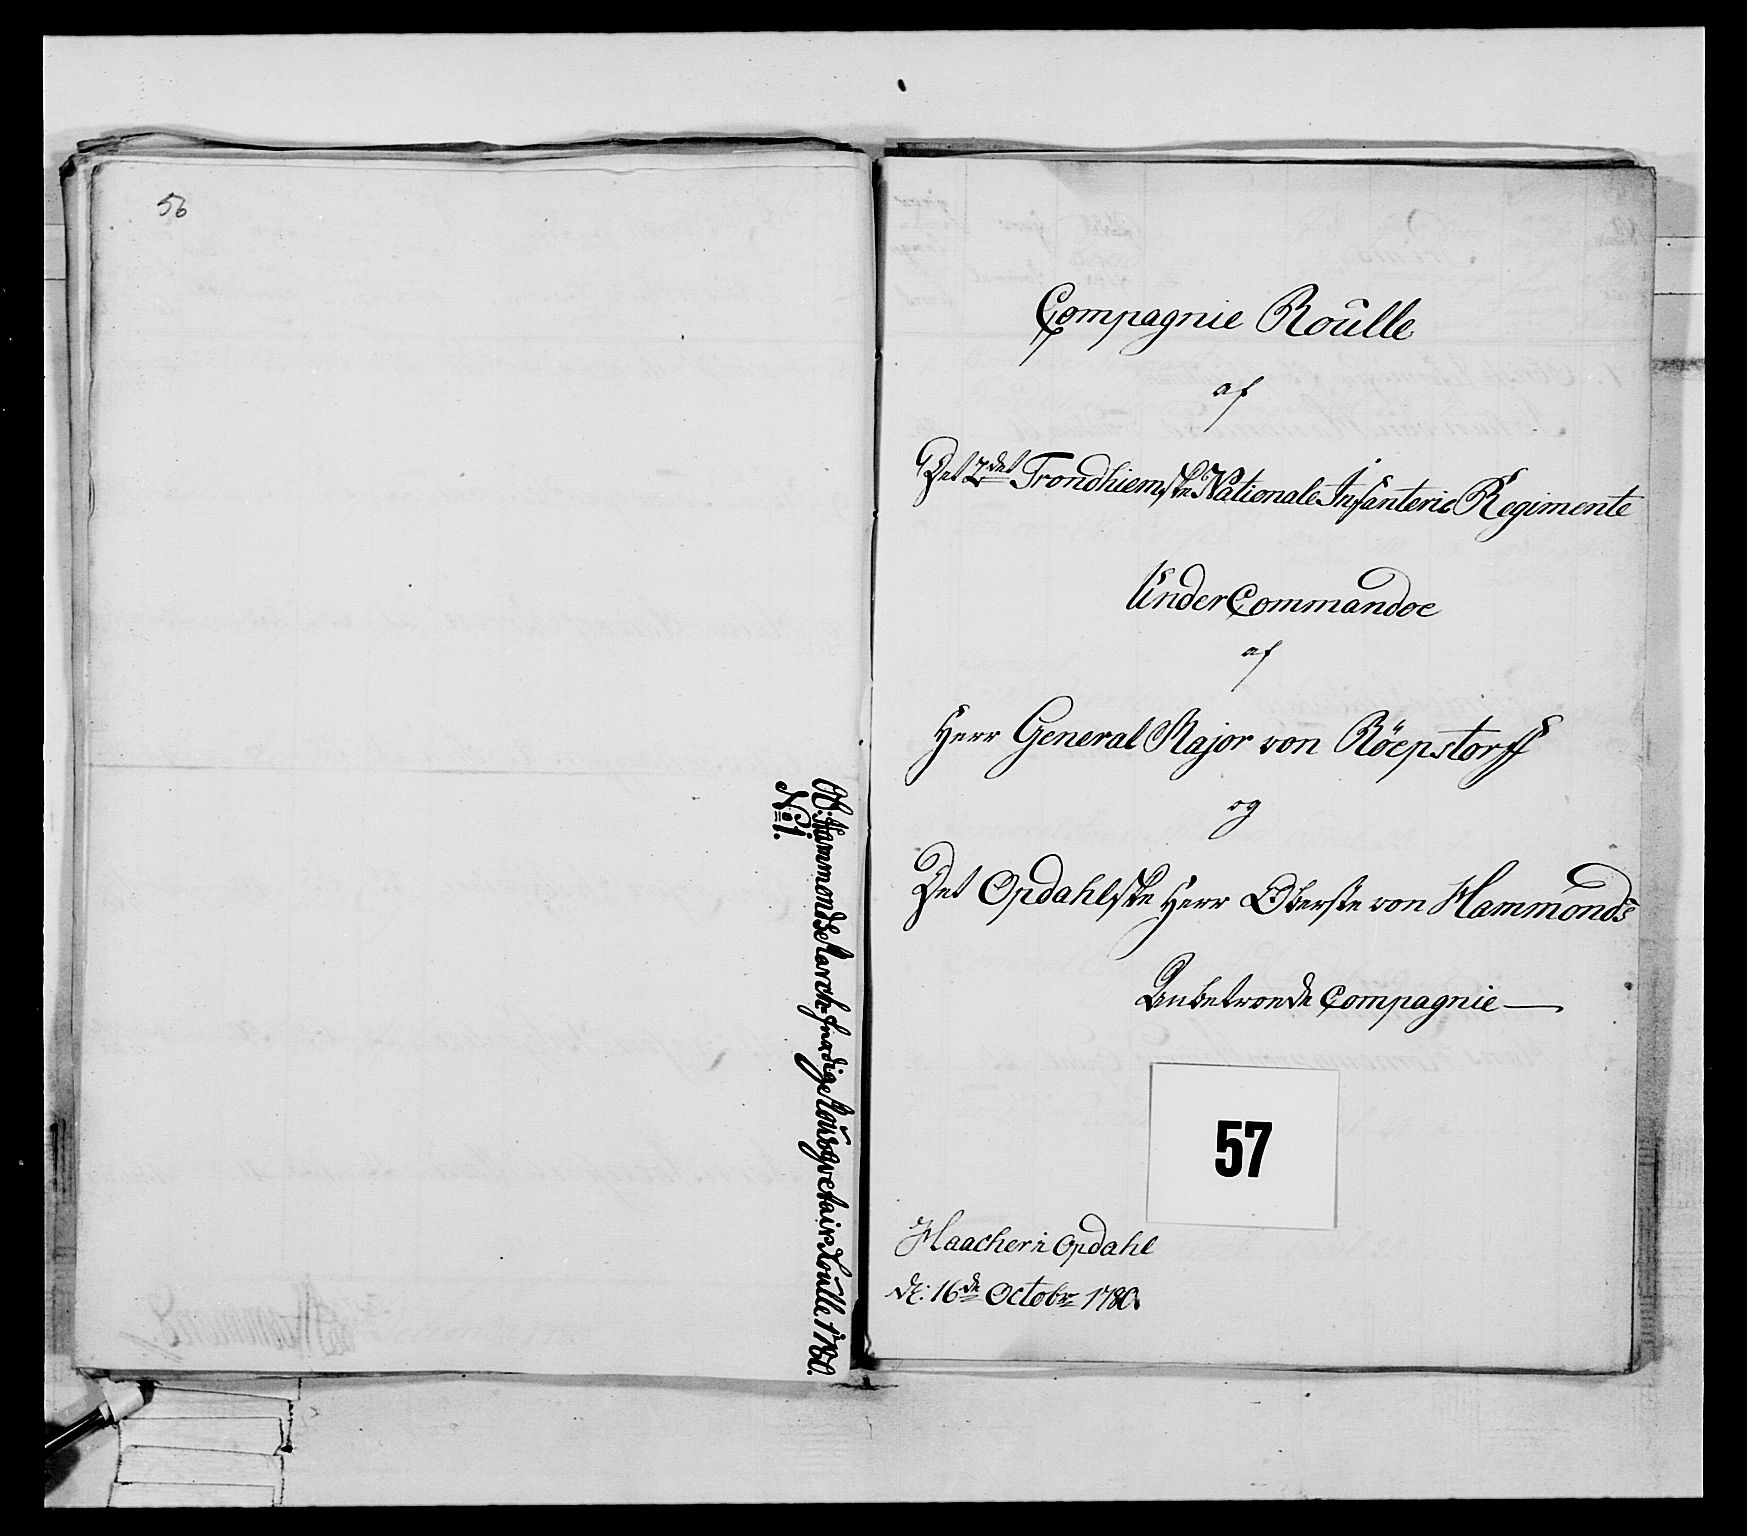 56
Ob: Hammonds March-færdige
No 1.
Compagnie Roûlle
af
Det 2det Trondhiemske Nationale Infanterie Regimente
Under Commandoe
af
Herr General Major von Röepstorff
og
Det Opdahlske Herr Oberste von Hammonds
Anbetroede Compagnie
57
Haacher i Opdahl
d: 16de Octobr 1780.